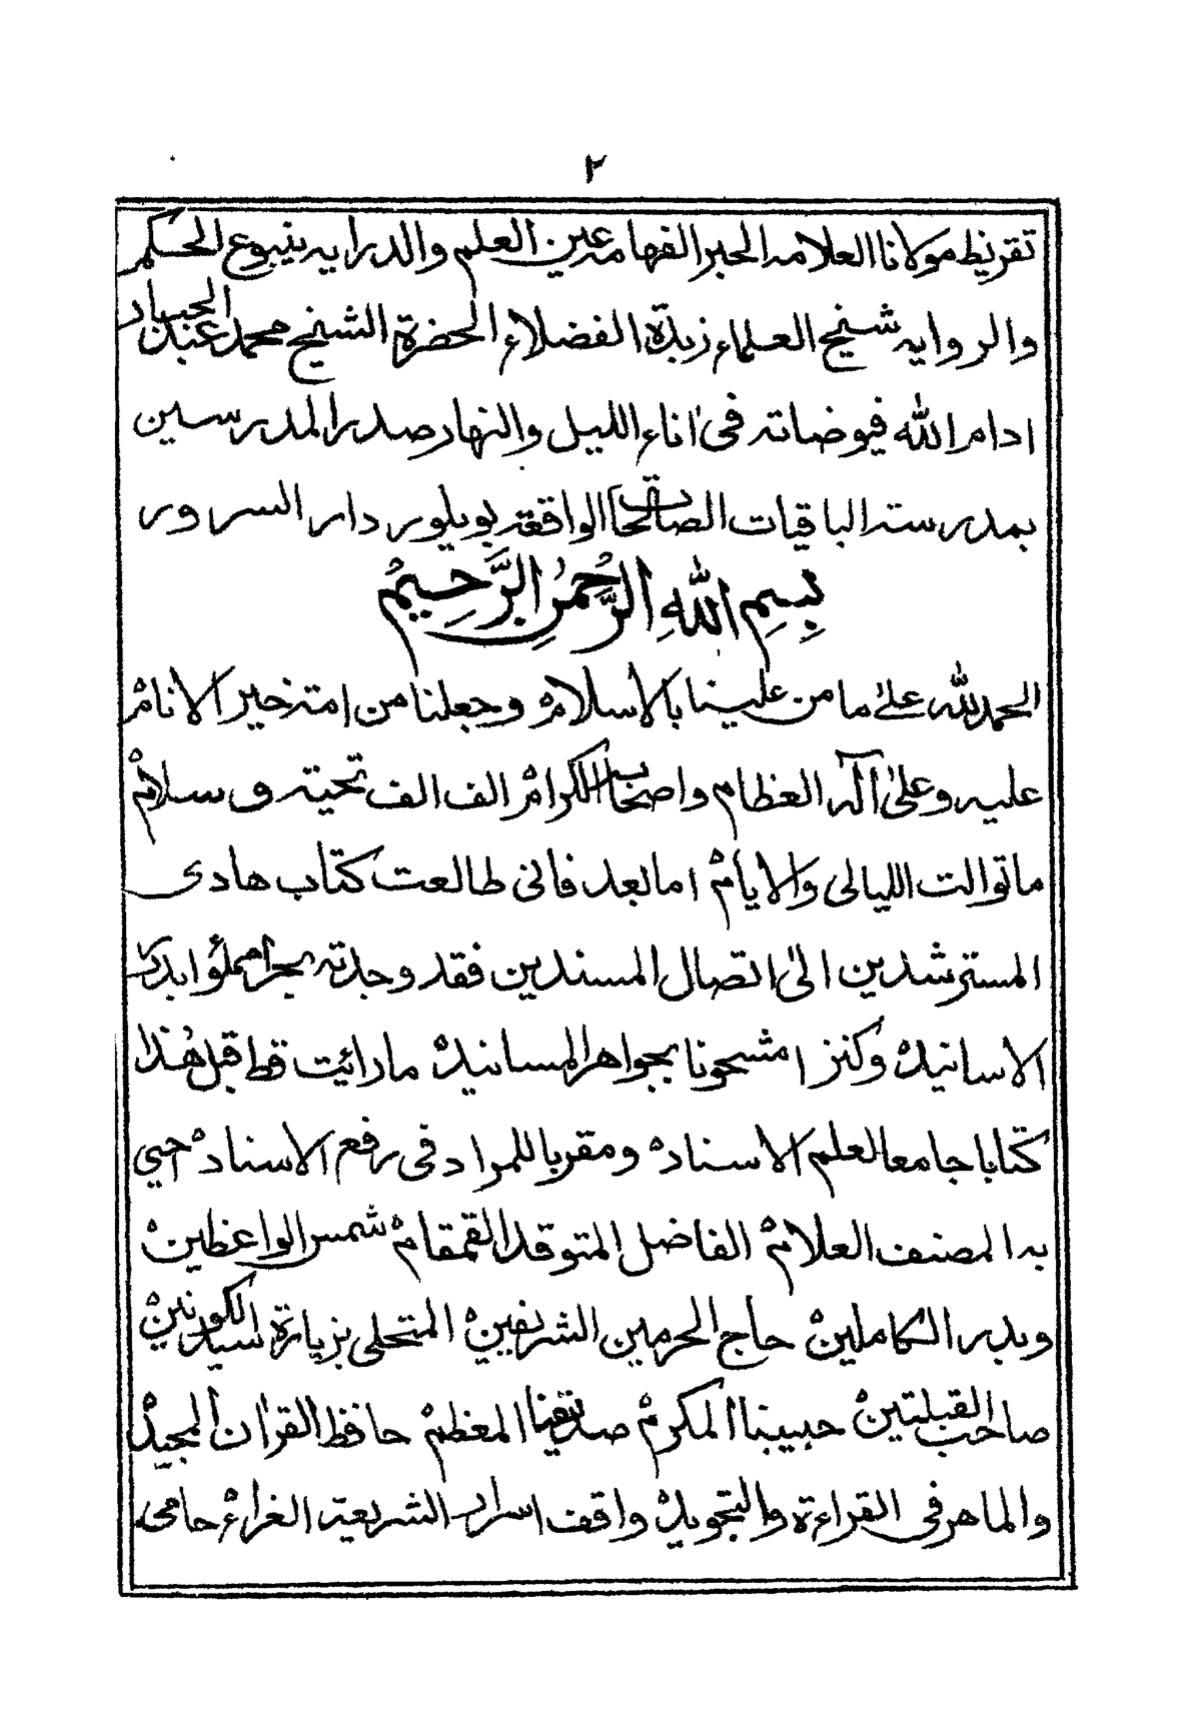 ٢
تقريظ مولانا العلامه الحبر الفهامه عين العلم والدرايه ينبوع الحكم
والروايه شيخ العلماء زبدة الفضلاء الحضرة الشيخ محمد عبد الجبار
ادام الله فيوضاته فى اناء الليل والنهار صدر المدرسين
بمدرسته الباقيات الصالحات الواقعة بويلور دار السرور
بِسْمِ اللهِ الرَّحْمٰنِ الرَّحِيْمْ
الحمد لله على ما من علينا بالاسلامْ وجعلنا من امته خير الانامْ
عليه وعلى آله العظام واصحابه الكرامْ الف الف تحيته وسلامْ
ما توالت الليالى والايامْ اما بعد فانى طالعت كتاب هادى
المسترشدين الى اتصال المسندين فقد وجدته بحرا مملؤا بدرر
الاسانيدْ وكنزا مشحونا بجواهر المسانيدْ ما رائيت قط قبل هٰذا
كتابا جامعا لعلم الاسنادْ ومقربا للمراد فى رفع الاسنادْ احيي
به المصنف العلامْ الفاضل المتوقد القمقامْ شمس الواعظينْ
وبدر الكاملينْ حاج الحرمين الشريفينْ المتحلى بزيارة سيد الكونينْ
صاحب القبلتينْ حبيبنا المكرمْ صديقنا المعظمْ حافظ القرآن المجيدْ
والماهر فى القراءة والتجويدْ واقف اسرار الشريعة الغراءْ حامى